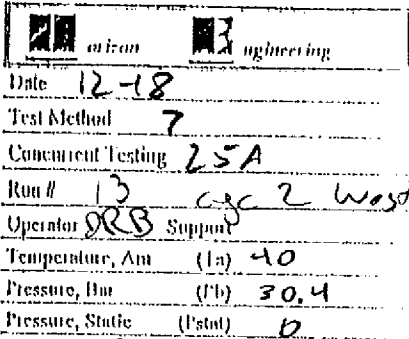 Date 12-18
Test Method 7
Concurrent Testing 25A
Run # 13 cyc 2 West
Operator DRB Support
Temperature, Am (Ta) 40
Pressure, Bar (Pb) 30.4
Pressure, Static (Pstat) 0